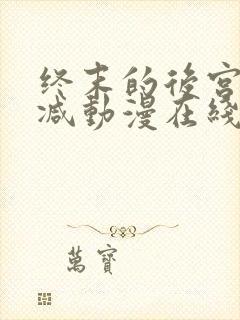 终末的後宫
减動漫在綫
萬寶